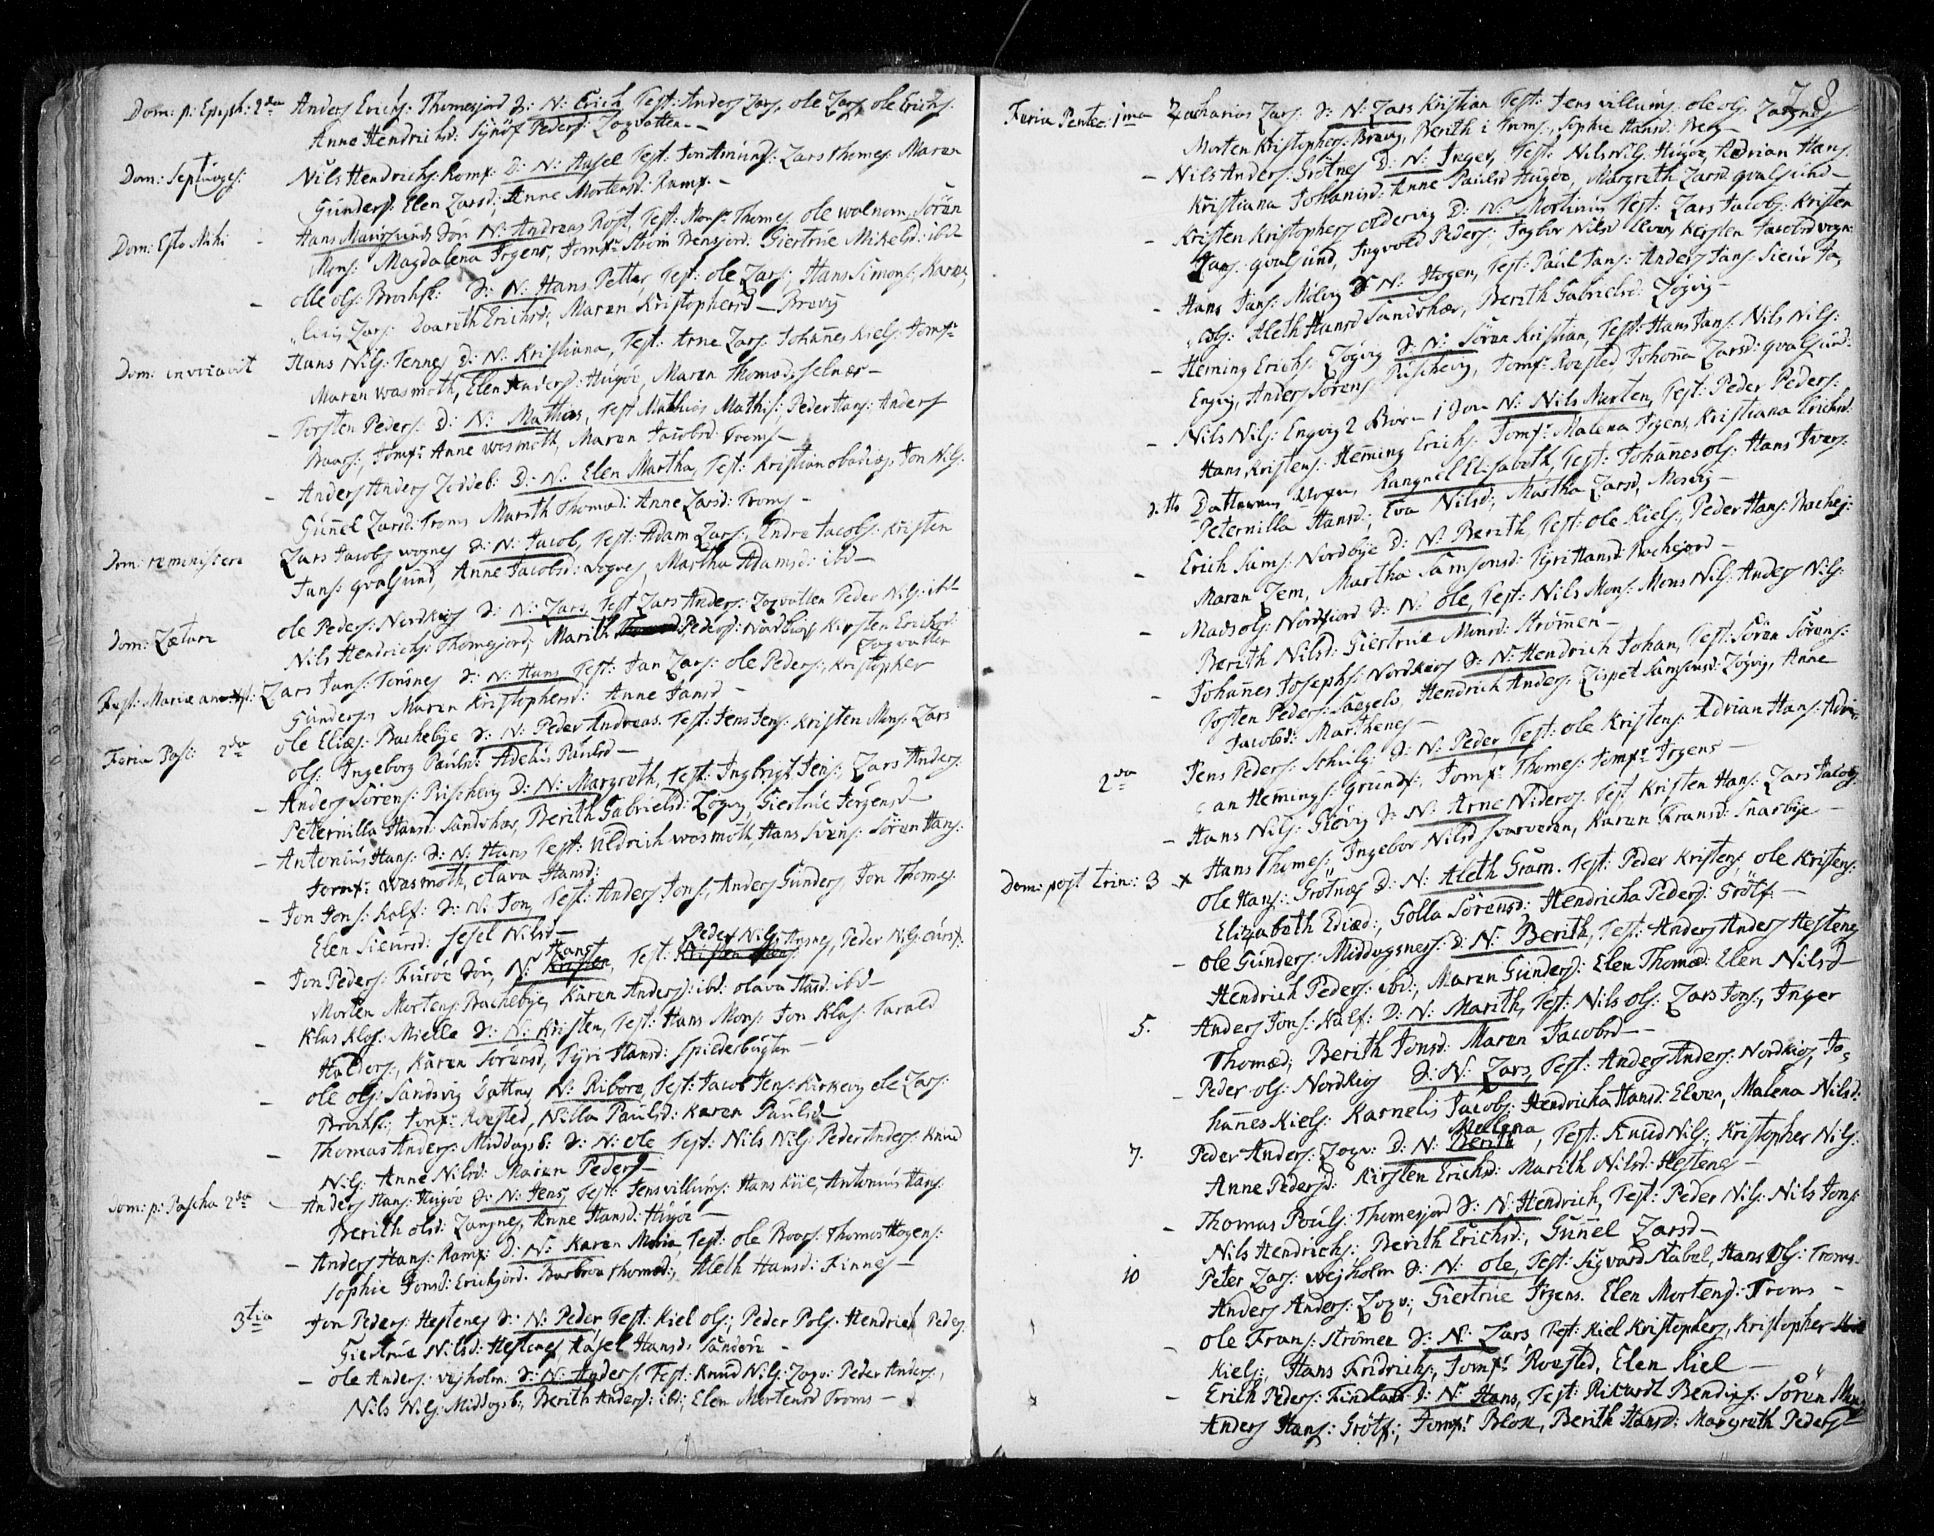 Dom: p: Epiph: 2da Anders Erichs: Thomesjord S: N: Erich Test: Anders Lars, ole Lars, ole Erichs:
Anne Hendrichsd: Synöf Peders: Logvatten –
Dom: Septuages: Nils Hendrichs: Ramf: D: N: Aasel Test: Jon Amunds: Lars Thomes: Maren
Gunders: Elen Larsd; Anne Mortensd: Ramf. –
Dom: Esto Mihi – Hans Maursunds Sön N: Andreas Rost, Test: Mons: Thomes, ole walnom, Sören
Mons: Magdalena Irgens, Jomfr: Ström Bensjord: Giertrüe Mikelsd: ibd
– olle ols: Brochsk: S: N: Hans Petter, Test: ole Lars; Hans Simons, Karne,
Lars: Doarith Erichsd; Maren Kristophersd – Brevig
Dom: invocavit Hans Nils: Tennes D: N: Kristiana, Test: Arne Lars: Johanes Kiels: Jomfr:
Maren wasmoth, Elen Andersd: Hugöe, Maren Thomasd: Selnæs –
– Torsten Peders: D: N: Mathias, Test Mathias Mathis: Peder Hans: Anders
Baars: Jomfr: Anne wosmoth, Maren Jacobsd: Troms –
– Anders Anders Leddeb: D: N: Elen Martha, Test: Kristian obadias, Jon Nils:
Gunnel Larsd: Troms Marith Thomasd: Anne Larsd: Troms –
Dom: reminiscere Lars Jacobs wognes S: N: Jacob, Test: Adam Lars; Endre Jacobs: Kristen
Jans: qvalsund, Anne Jacobsd: wognes, Martha Adamsd: ibd –
Dom: Lætare ole Peders: Nordkios S: N: Lars, Test Lars Anders: Logvatten Peder Nils: ibd
Nils Hendrichs: Thomesjord, Marith Pedersd: Nordkios Kirsten Erichsd:
Logvatten
Fest: Mariæ annunt: Lars Jans: Tonsnes S: N: Hans Test: Jan Lars: ole Peders: Kristopher
Gunders: Maren Kristophersd: Anne Jansd –
Feria Pasc: 2da ole Elias: Bachebye S: N: Peder Andreas. Test: Jens Jens: Kristen Mons: Lars
ols: Ingeborg Paulsd: Adelus Paulsd –
– Anders Sörens: Rischevig D: N: Margreth, Test: Ingbrigt Jens: Lars Anders:
Peternilla Hansd: Sandshav, Berith Gabrielsd: Logvig, Giertrüe Jörgensd –
– Antonius Hans: S: N: Hans Test: Uldrich wosmoth, Hans Svens: Sören Hans:
Jomfr: wasmoth, olava Hansd:
– Jon Jons: Kalf: S: N: Jon, Test: Anders Jons, Anders Gunders, Jon Thomes:
Elen Siversd: Sesel Nilsd –
Hans Peder Nils
– Jon Peders: Furöe Sön, N: Kristen, Test: Kristen Hans: Peder Nils:
Morten Mortens: Bachebye, Karen Andersd: ibd: olava Hansd: ibd –
– Klas Klos: Mielle S: N: Kristen, Test: Hans Mons: Jon Klas: Tarald
Halders:, Karen Sörensd, Tyri Hansd: Spilderbugten –
– ole ols: Sandsvig Datter, N: Ribore, Test: Jacob Jens: Kirkevig ole Lars:
Brochsk:, Jomf: Roested, Nilla Paulsd: Karen Paulsd –
– Thomas Anders: Middagsb: S: N: ole Test: Nils Nils: Peder Anders: Knud
Nils: Anne Nilsd: Maren Peders –
Dom: p: Pascha 2da – Anders Hans: Hugöe S: N: Jens, Test: Jens villums: Hans Kiil, Antonius Hans:
Berith olsd: Langnes, Anne Hansd: Hugöe –
– Anders Hans: Ramf: D: N: Karen Maria, Test: ole Roars: Thomas Hogens:
Sophie Jonsd: Erickjord: Barbroe Thomed; Aleth Hansd: Finnes –
3tia Jon Peders: Hestenes S: N: Peder Test: Kiel ols; Peder Pols. Hendrich Peders,
Giertrue Nilsd: Hestenes, Aasel Hansd: Sandöre –
– ole Anders: vejholm: S: N: Anders, Test: Knud Nils: Logv: Peder Anders:,
Nils Nils: Middagsb:, Berith Andersd: ibd; Elen Mortensd Troms –
78
Feria Pentec: 1ma Zacharias Lars: S: N: Lars Kristian Test: Jens villums: ole ols: Langnes
Morten Kristophers: Brevig, Berith i Troms, Sophie Hansd: Berg –
– Nils Anders: Grötnes D: N: Inger, Test: Nils Nils: Hugöe, Adrian Hans:
Kristiana Johanisd: Anne Paulsd Hugöe, Margreth Larsd qvalsund –
– Kristen Kristophers oldervig D: N: Mortinus Test: Lars Jacobs: Kristen
Jans: qvalsund, Ingvold Peders: Ingbor Nilsd Elven, Kirsten Jacobsd vogn:
– Hans Jans: Mölvig S: N: Hogen, Test: Paul Jans: Anders Jans: Siver Ja,
cobs: Aleth Hansd Sandshav, Berith Gabrielsd: Logvig –
– Heming Erichs: Logvig S: N: Sören Kristian, Test: Hans Jans: Nils Nils:
Engvig, Anders Sörens: Rischevig, Jomfr: Roested Johana Larsd: qvalsund:
– Nils Nils: Engvig 2 Börn 1 Sön N: Nils Morten, Test: Peder Peders:
Hans Kristens: Heming Erichs: Jomfr: Malena Irgens, Kristiana Erichsd:
d: to Datteren Rangnel Elisabeth, Test: Johannes ols: Hans Ivers:
Peternilla Hansd:, Eva Nilsd:, Martha Larsd, Mosvig –
– Erich Sams: Nordbye D: N: Berith, Test: ole Kiels, Peder Hans: Bachej:
Maren Lem, Martha Samsonsd: Tyri Hansd: Bachejord –
– Mads ols: Nordfiord S: N: ole, Test: Nils Mons: Mons Nils: Anders Nils:
Berith Nilsd: Giertrüe Monsd: Strömen –
– Johannes Josephs: Nordkios S: N: Hendrich Johan, Test: Sören Sörens:
Torsten Peders: Hendrich Anders: Lispet Samsonsd: Logvig, Anne
Jacobsd: Marthenes –
2da Jens Peders: Schulg: S: N: Peder, Test: ole Kristens: Adrian Hans: Adri,
an Hemings: Grunds:, Jomfr: Thomes: Jomfr: Irgens –
– Hans Nils: Glövig S: N: Arne Nideros, Test: Kristen Hans: Lars Jacobs:
Hans Thomes: Ingebor Nilsd Svarveren, Karen Fransd: Snarbye –
Dom: post trin: 3 x ole Hans: Grötnæs D: N: Aleth Gram. Test: Peder Kristens, ole Kristens:
Elizabeth Ediæd:, Golla Sörensd: Hendricha Pedersd: Grötf –
– ole Gunders: Middvognes: D: N: Berith, Test: Anders Anders Hestenes
Hendrich Peders: ibd:, Maren Gundersd: Elen Thomæd: Elen Nilsd –
5. Anders Jons: Kalf: D: N: Marith, Test: Nils ols: Lars Jons:, Inger
Thomæd; Berith Jonsd: Maren Jacobsd –
– Peder ols: Nordkios S: N: Lars, Test: Anders Anders: Nordkios, Jo,
hannes Kiels: Karnelis Jacobs: Hendricha Hansd: Elven, Malena Nilsd:
Malena
7. Peder Anders: Logv: D: N: Berith, Test: Knud Nils:, Kristopher Nils:
Anne Pedersd: Kirsten Erichsd: Marith Nilsd: Hestenes –
– Thomas Pouls: Thomesjord S: N: Hendrich, Test: Peder Nils: Nils Jons:
Nils Hendrichs:, Berith Erichsd:, Gunnel Larsd –
10 Peter Lars: wejholm S: N: ole, Test: Sigvard Stabel, Hans Ols: Troms.
Anders Anders: Logv:, Giertrüe Irgens. Elen Mortensd: Troms –
– ole Frans: Strömen S: N: Lars Test: Kiel Kristophers, Kristopher
Kiels:, Hans Fridrichs:, Jomfr: Roested, Elen Kiel –
– Erich Peders: Finland: S: N: Hans, Test: Rikardt Bendixs: Sören
Anders Hans: Grötf:, Jomfr: Blox, Berith Hansd: Margreth Peders –